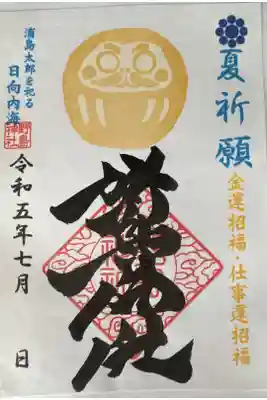 夏祈願
金運招福・仕事運招福
浦島太郎を祀る
日向内海
野島神社
令和五年七月　日